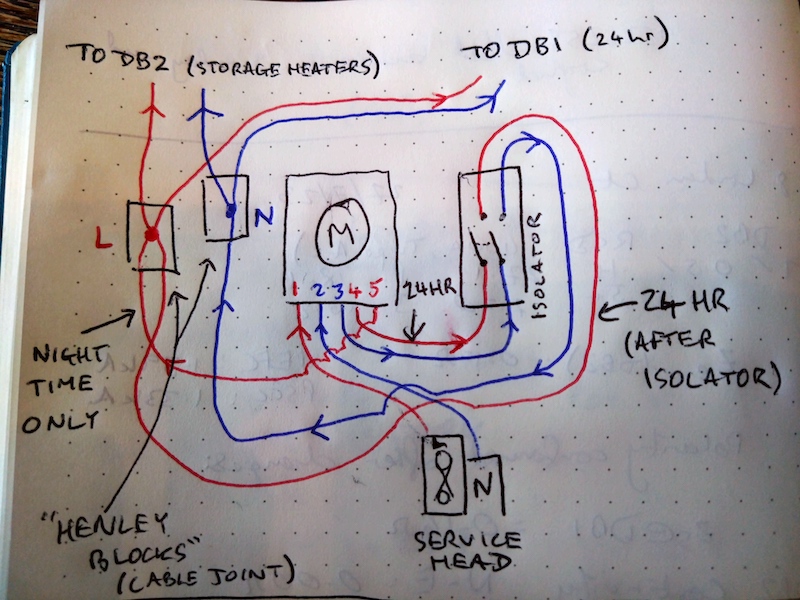 TO DB2 (STORAGE HEATERS)
TO DB1 (24hr)
L
N
M
1 2 3 4 5
24HR
ISOLATOR
NIGHT
TIME
ONLY
24 HR
(AFTER
ISOLATOR)
"HENLEY
BLOCKS"
(CABLE JOINT)
L
N
SERVICE
HEAD